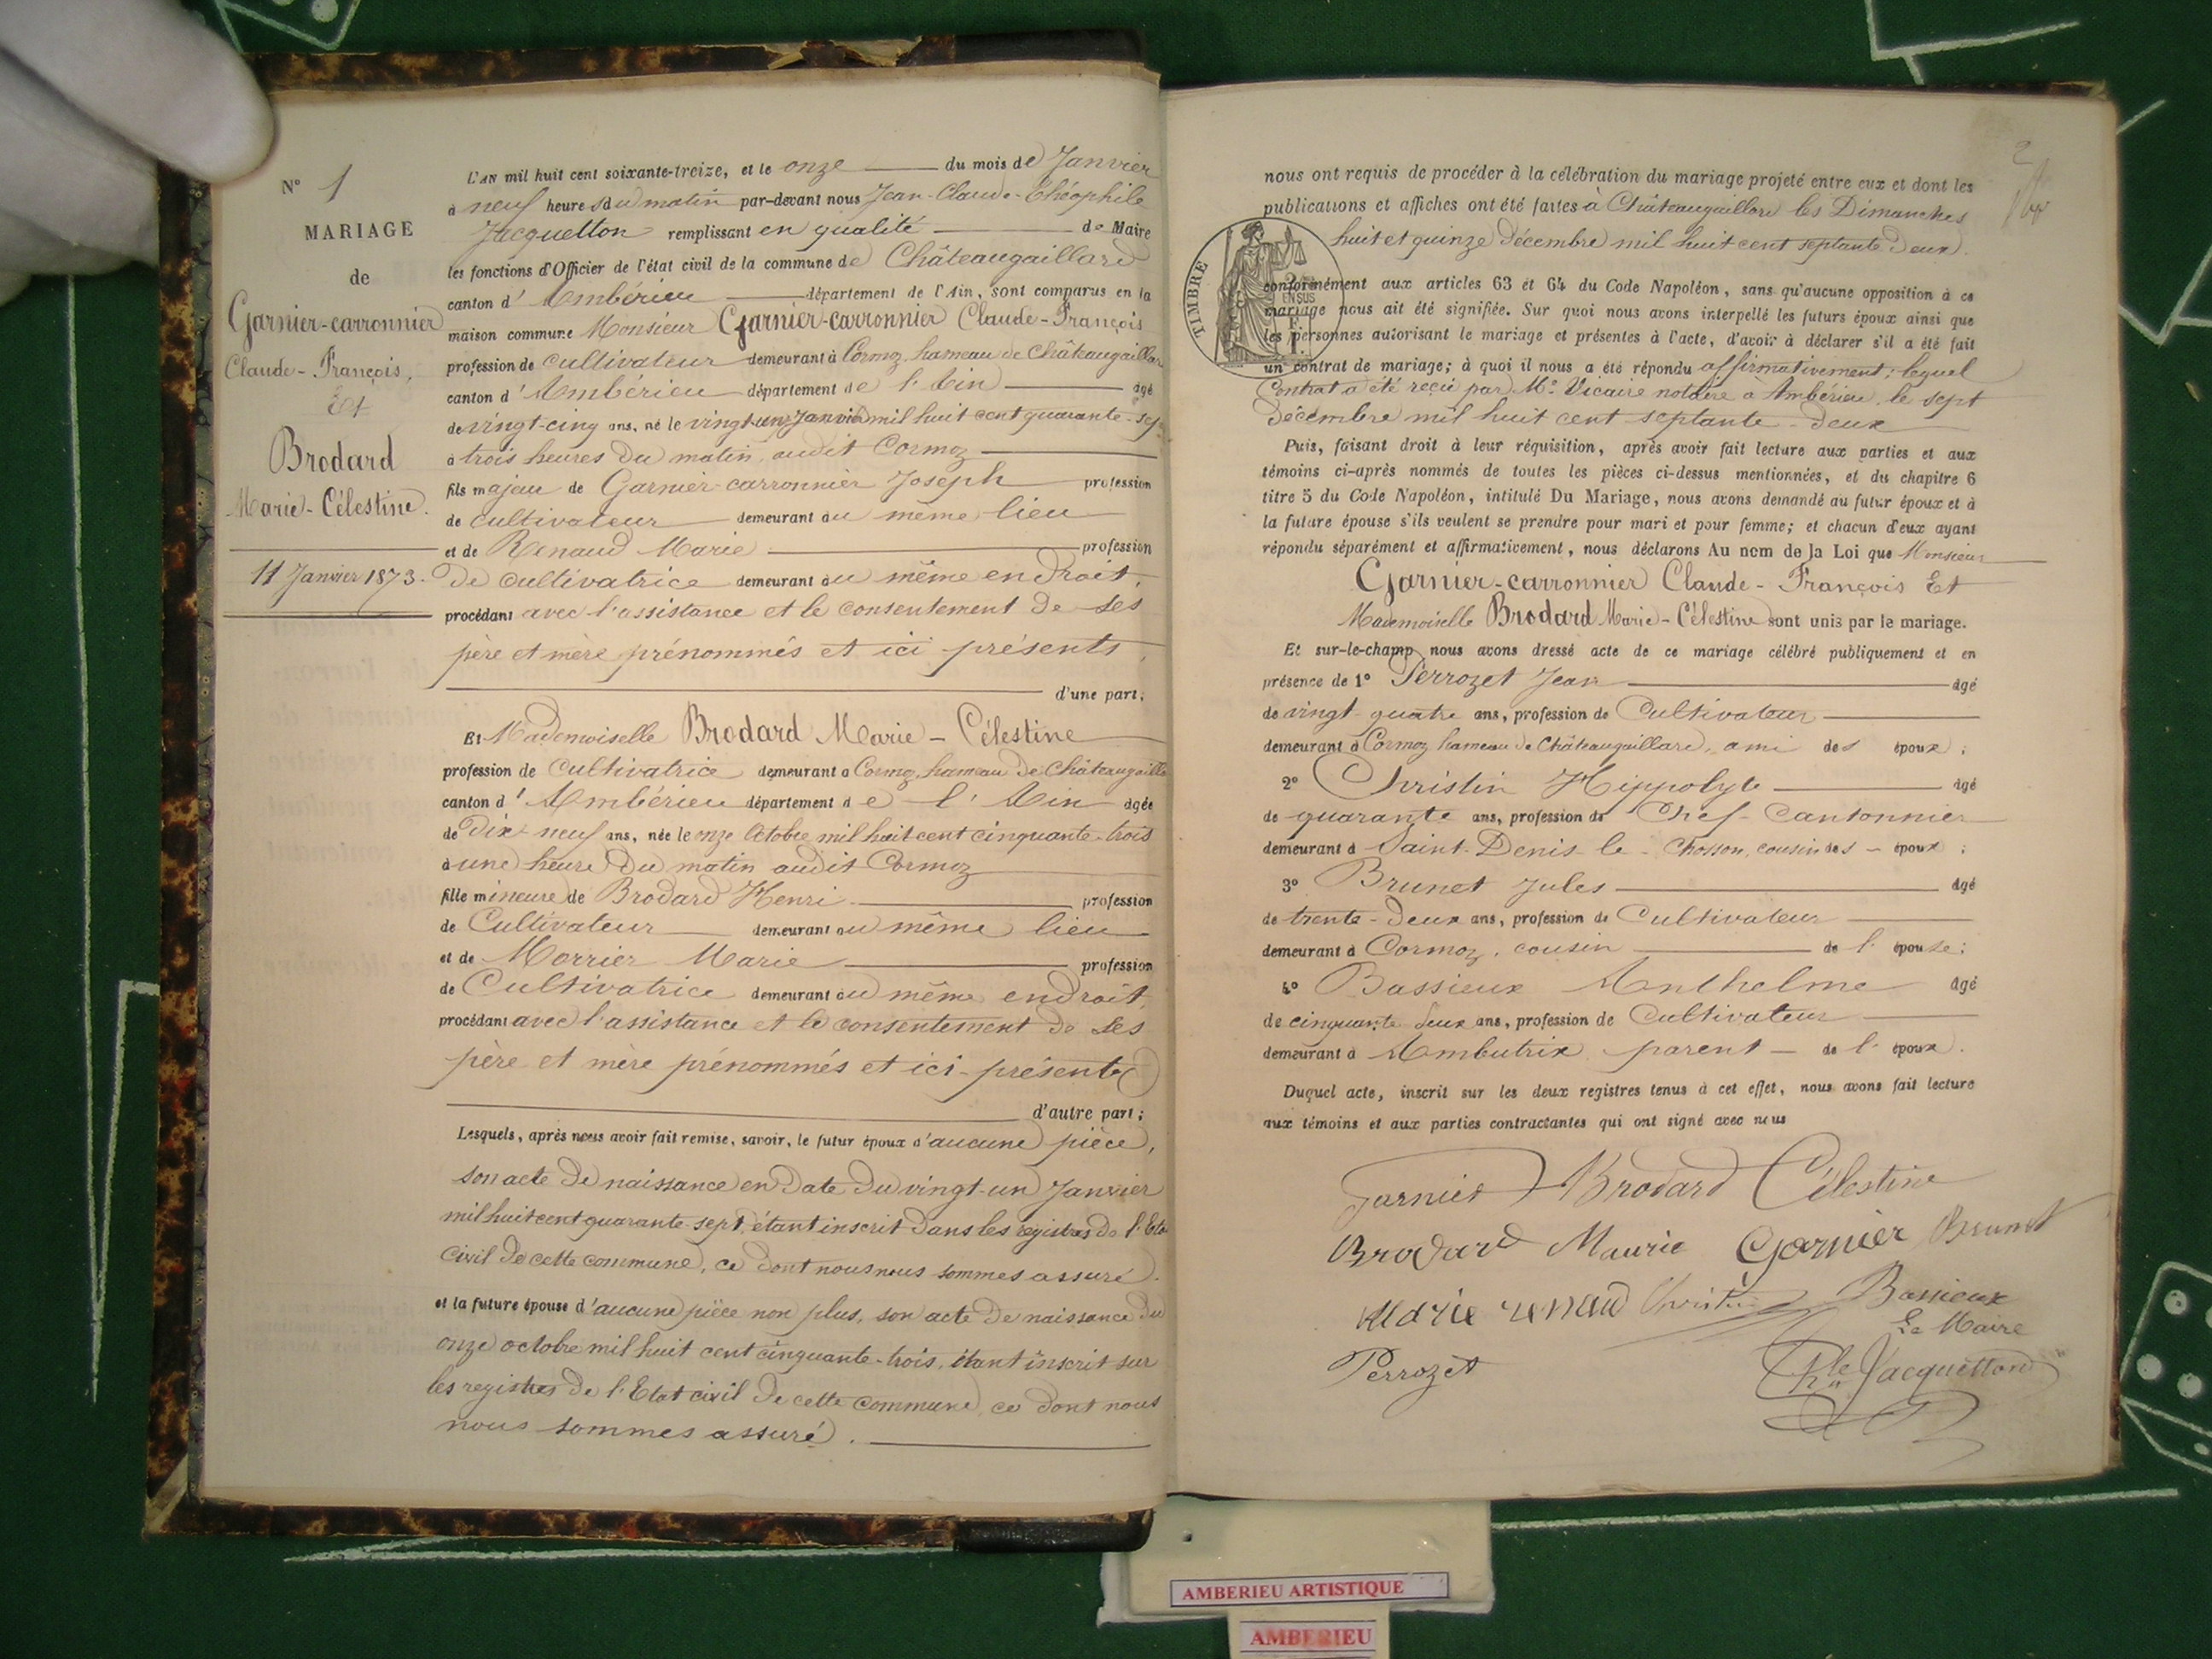 N° 1
MARIAGE
de
Garnier-carronnier
Claude-François,
Et
Brodard
Marie-Célestine.
11 Janvier 1873.
L'AN mil huit cent soixante-treize, et le onze du mois de Janvier
à neuf heures du matin par-devant nous Jean-Claude-Théophile
Jacquetton remplissant en qualité de Maire
les fonctions d'Officier de l'état civil de la commune de Châteaugaillard
canton d'Ambérieu département de l'Ain, sont comparus en la
maison commune Monsieur Garnier-carronnier Claude-François
profession de cultivateur demeurant à Cormoz, hameau de Châteaugaillard
canton d'Ambérieu département de l'Ain âgé
de vingt-cinq ans, né le vingt-un Janvier mil huit cent quarante-sept
à trois heures du matin, audit Cormoz
fils majeur de Garnier-carronnier Joseph profession
de cultivateur demeurant au même lieu
et de Renaud Marie profession
de cultivatrice demeurant au même endroit,
procédant avec l'assistance et le consentement de ses
père et mère prénommés et ici présents,
d'une part;
Et Mademoiselle Brodard Marie-Célestine
profession de cultivatrice demeurant à Cormoz, hameau de Châteaugaillard
canton d'Ambérieu département de l'Ain âgée
de Dix-neuf ans, née le onze Octobre mil huit cent cinquante-trois
à une heure du matin audit Cormoz
fille mineure de Brodard Henri profession
de Cultivateur demeurant au même lieu
et de Morrier Marie profession
de Cultivatrice demeurant au même endroit,
procédant avec l'assistance et le consentement de ses
père et mère prénommés et ici-présents
d'autre part;
Lesquels, après nous avoir fait remise, savoir, le futur époux d'aucune pièce,
son acte de naissance en date du vingt-un Janvier
mil huit cent quarante-sept, étant inscrit dans les registres de l'Etat
Civil de cette commune, ce dont nous nous sommes assuré.
et la future épouse d'aucune pièce non plus, son acte de naissance du
onze octobre mil huit cent cinquante-trois, étant inscrit sur
les registres de l'Etat civil de cette commune, ce dont nous
nous sommes assuré.
2
nous ont requis de procéder à la célébration du mariage projeté entre eux et dont les
publications et affiches ont été faites à Châteaugaillard les Dimanches
huit et quinze Décembre mil huit cent septante-deux.
TIMBRE
EN SUS
conformément aux articles 63 et 64 du Code Napoléon, sans qu'aucune opposition à ce
mariage nous ait été signifiée. Sur quoi nous avons interpellé les futurs époux ainsi que
les personnes autorisant le mariage et présentes à l'acte, d'avoir à déclarer s'il a été fait
un contrat de mariage; à quoi il nous a été répondu affirmativement; lequel
Contrat a été reçu par Me Vicaire notaire à Ambérieu, le sept
Décembre mil huit cent septante-deux
Puis, faisant droit à leur réquisition, après avoir fait lecture aux parties et aux
témoins ci-après nommés de toutes les pièces ci-dessus mentionnées, et du chapitre 6
titre 5 du Code Napoléon, intitulé Du Mariage, nous avons demandé au futur époux et à
la future épouse s'ils veulent se prendre pour mari et pour femme; et chacun d'eux ayant
répondu séparément et affirmativement, nous déclarons Au nom de la Loi que Monsieur
Garnier-carronnier Claude-François Et
Mademoiselle Brodard Marie-Célestine sont unis par le mariage.
Et sur-le-champ nous avons dressé acte de ce mariage célébré publiquement et en
présence de 1° Perrozet Jean âgé
de vingt-quatre ans, profession de Cultivateur
demeurant à Cormoz hameau de Châteaugaillard, ami des époux;
2° Christin Hippolyte âgé
de quarante ans, profession de Chef-Cantonnier
demeurant à Saint-Denis-le-Chosson, cousin des époux;
3° Brunet Jules âgé
de trente-deux ans, profession de Cultivateur
demeurant à Cormoz, cousin de l'épouse;
4° Bassieux Anthelme âgé
de cinquante deux ans, profession de Cultivateur
demeurant à Ambutrix, parent de l'époux.
Duquel acte, inscrit sur les deux registres tenus à cet effet, nous avons fait lecture
aux témoins et aux parties contractantes qui ont signé avec nous
Garnier Brodard Célestine
Brodard Maurie Garnier Brunet
Marie renaud Christin Bassieux
Le Maire
Perrozet Jacquetton
AMBERIEU ARTISTIQUE
AMBERIEU